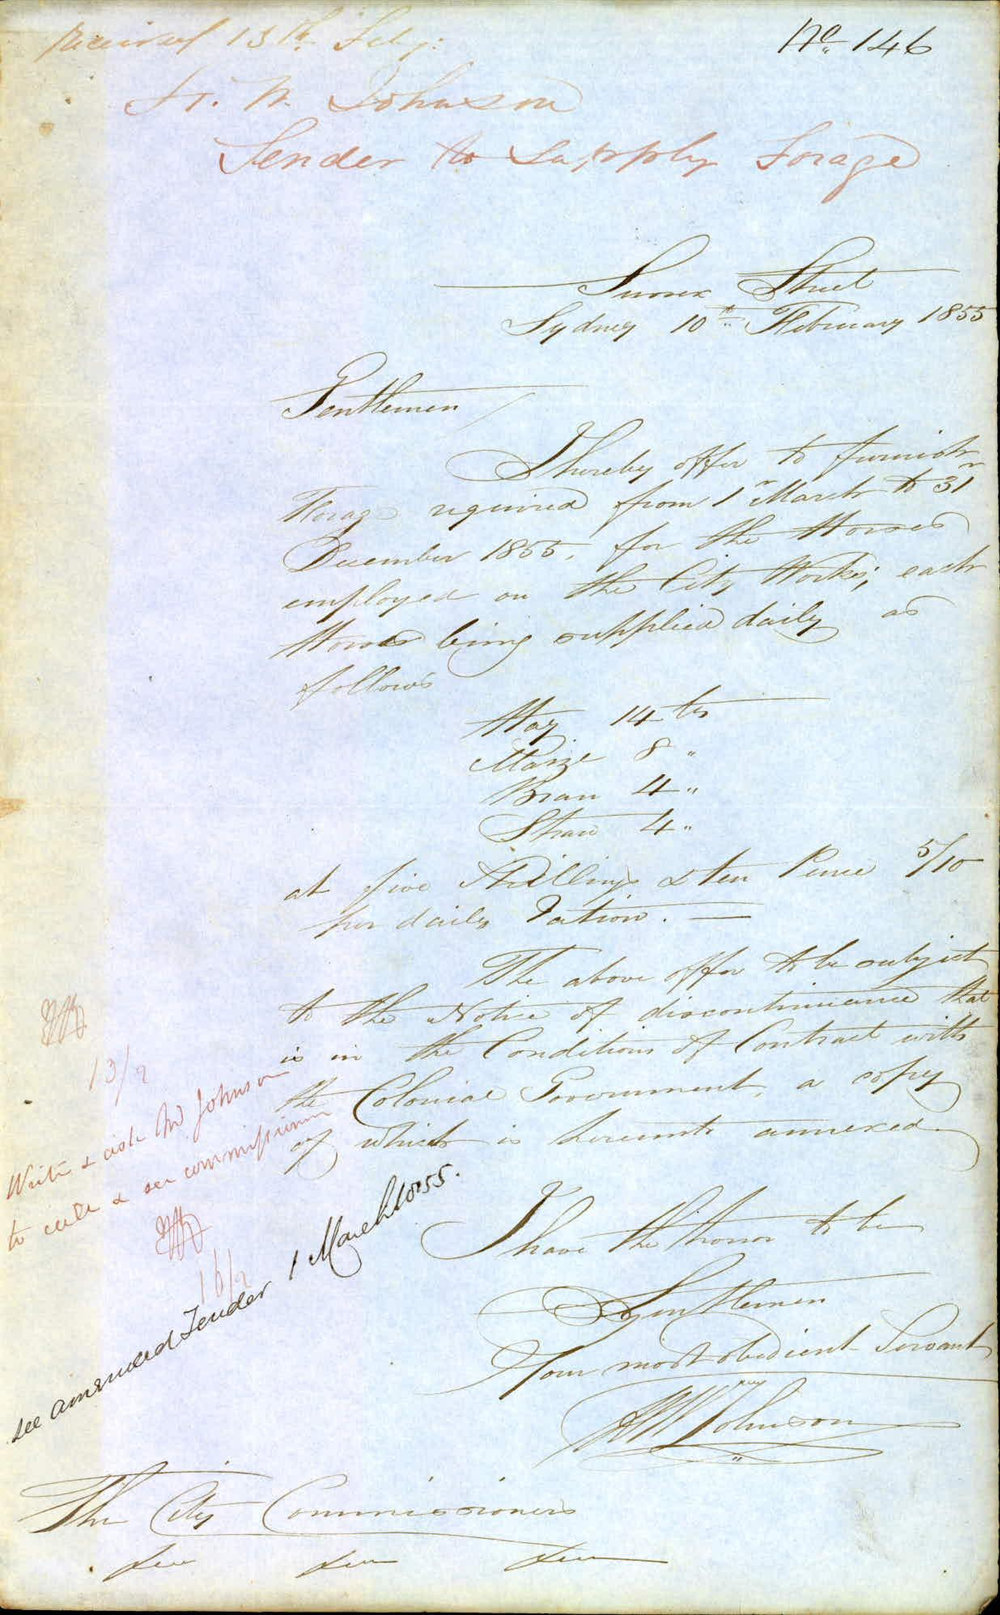 received 13th Feby:
No. 146
H. W. Johnson
Tender to Supply Forage
Sussex Street
Sydney 10th February 1855
Gentlemen
I hereby offer to furnish
Forage required from 1st March to 31st
December 1855, for the Horses
employed on the City Works; each
Horse being supplied daily as
follows
Hay 14 lbs
Maize 8 "
Bran 4 "
Straw 4 "
at five Shillings & ten Pence 5/10
per daily ration. —
The above offer to be subject
to the Notice of discontinuance that
is in the Conditions of Contract with
the Colonial Government, a copy
of which is hereunto annexed.
13/2
Write & ask Mr Johnson
to call & see commissioners
16/2
see amended Tender 1 March 1855.
I have the honor to be
Gentlemen
Your most obedient Servant
Johnson
The City Commissioners
&c &c &c